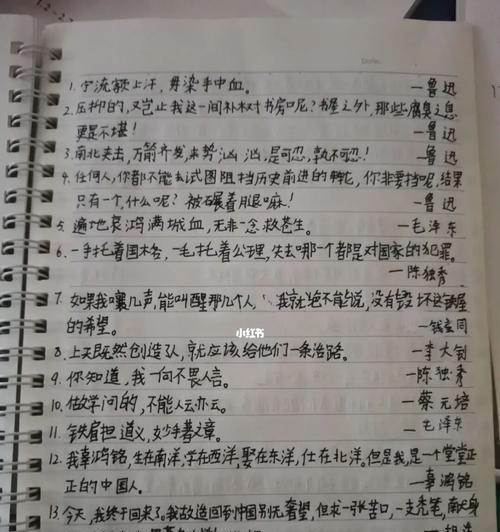 1. 宁流额上汗，毋染手中血。
—鲁迅
2. 压抑的，又岂止我这一间补树书房呢？书屋之外，那些腐臭之息
更是不堪！ —鲁迅
3. 南北夹击，万箭齐发，来势汹汹，是可忍，孰不可忍！ —鲁迅
4. 任何人，你都不能去试图阻挡历史前进的车轮，你非要挡呢，结果
只有一个，什么呢？被碾着腿嘛！ —鲁迅
5. 遍地哀鸿满城血，无非一念救苍生。 —毛泽东
6. 一手托着国格，一手托着公理，失去哪一个都是对国家的犯罪。
—陈独秀
7. 如果我嚷几声，能叫醒那几个人，我就绝不能说，没有毁坏这铁屋
的希望。 —钱玄同
小红书
8. 上天既然创造了人，就应该给他们一条活路。 —李大钊
9. 你知道，我一向不畏人言。 —陈独秀
10. 做学问的，不能人云亦云。 —蔡元培
11. 铁肩担道义，妙手著文章。 —毛泽东
12. 我辜鸿铭，生在南洋，学在西洋，娶在东洋，仕在北洋。但是我，是一个堂堂正
正的中国人。 —辜鸿铭
13. 今天，我终于回来了。我故返回中国别无奢望，但求一张苦口，一支秃笔，